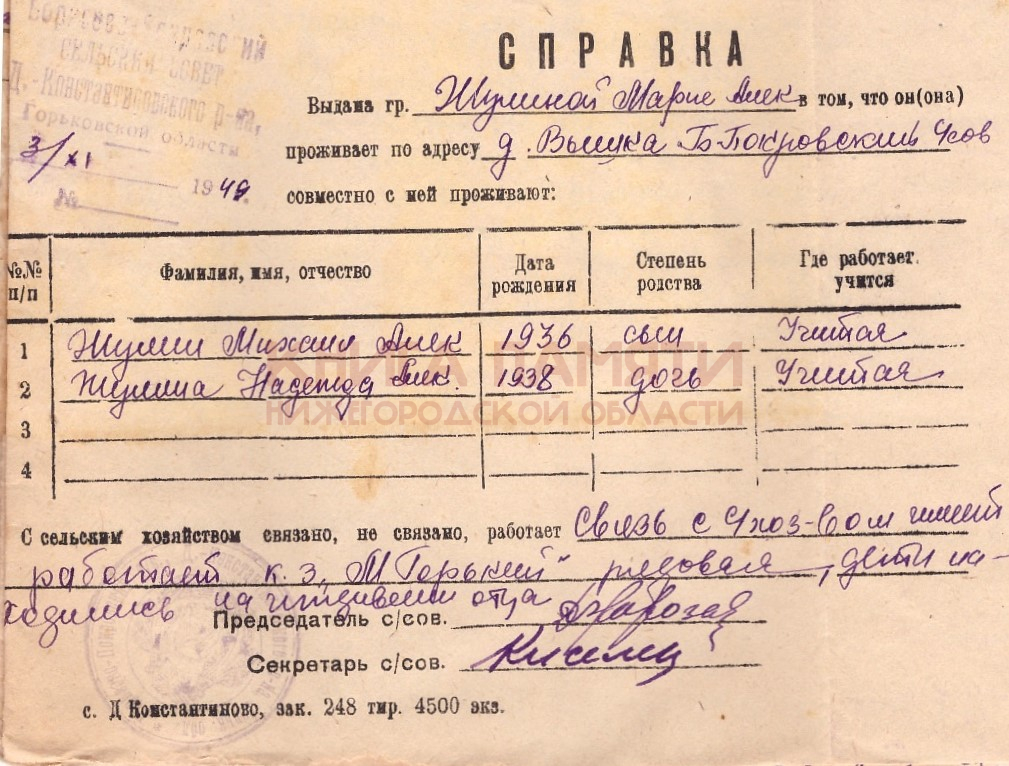 сельский совет
Д.-Константиновского р-на,
Горьковской области
3/XI 1949.
№
СПРАВКА
Выдана гр. Жулиной Марие Алек в том, что он(она)
проживает по адресу д. Вылука Б-Покровский с/сов
совместно с ней проживают:
№№ п/п Фамилия, имя, отчество Дата рождения Степень родства Где работает учится
1 Жулин Михаил Алек 1936 сын Учится
2 Жулина Надежда Алек. 1938 дочь Учится
3
4
КНИГА ПАМЯТИ
НИЖЕГОРОДСКОЙ ОБЛАСТИ
С сельским хозяйством связано, не связано, работает Связь с с/хоз-вом имеет
работает к-з „М Горький" рядовая, дети на-
ходились на иждивении отца
Председатель с/сов.
Секретарь с/сов.
с. Д Константиново, зак. 248 тир. 4500 экз.